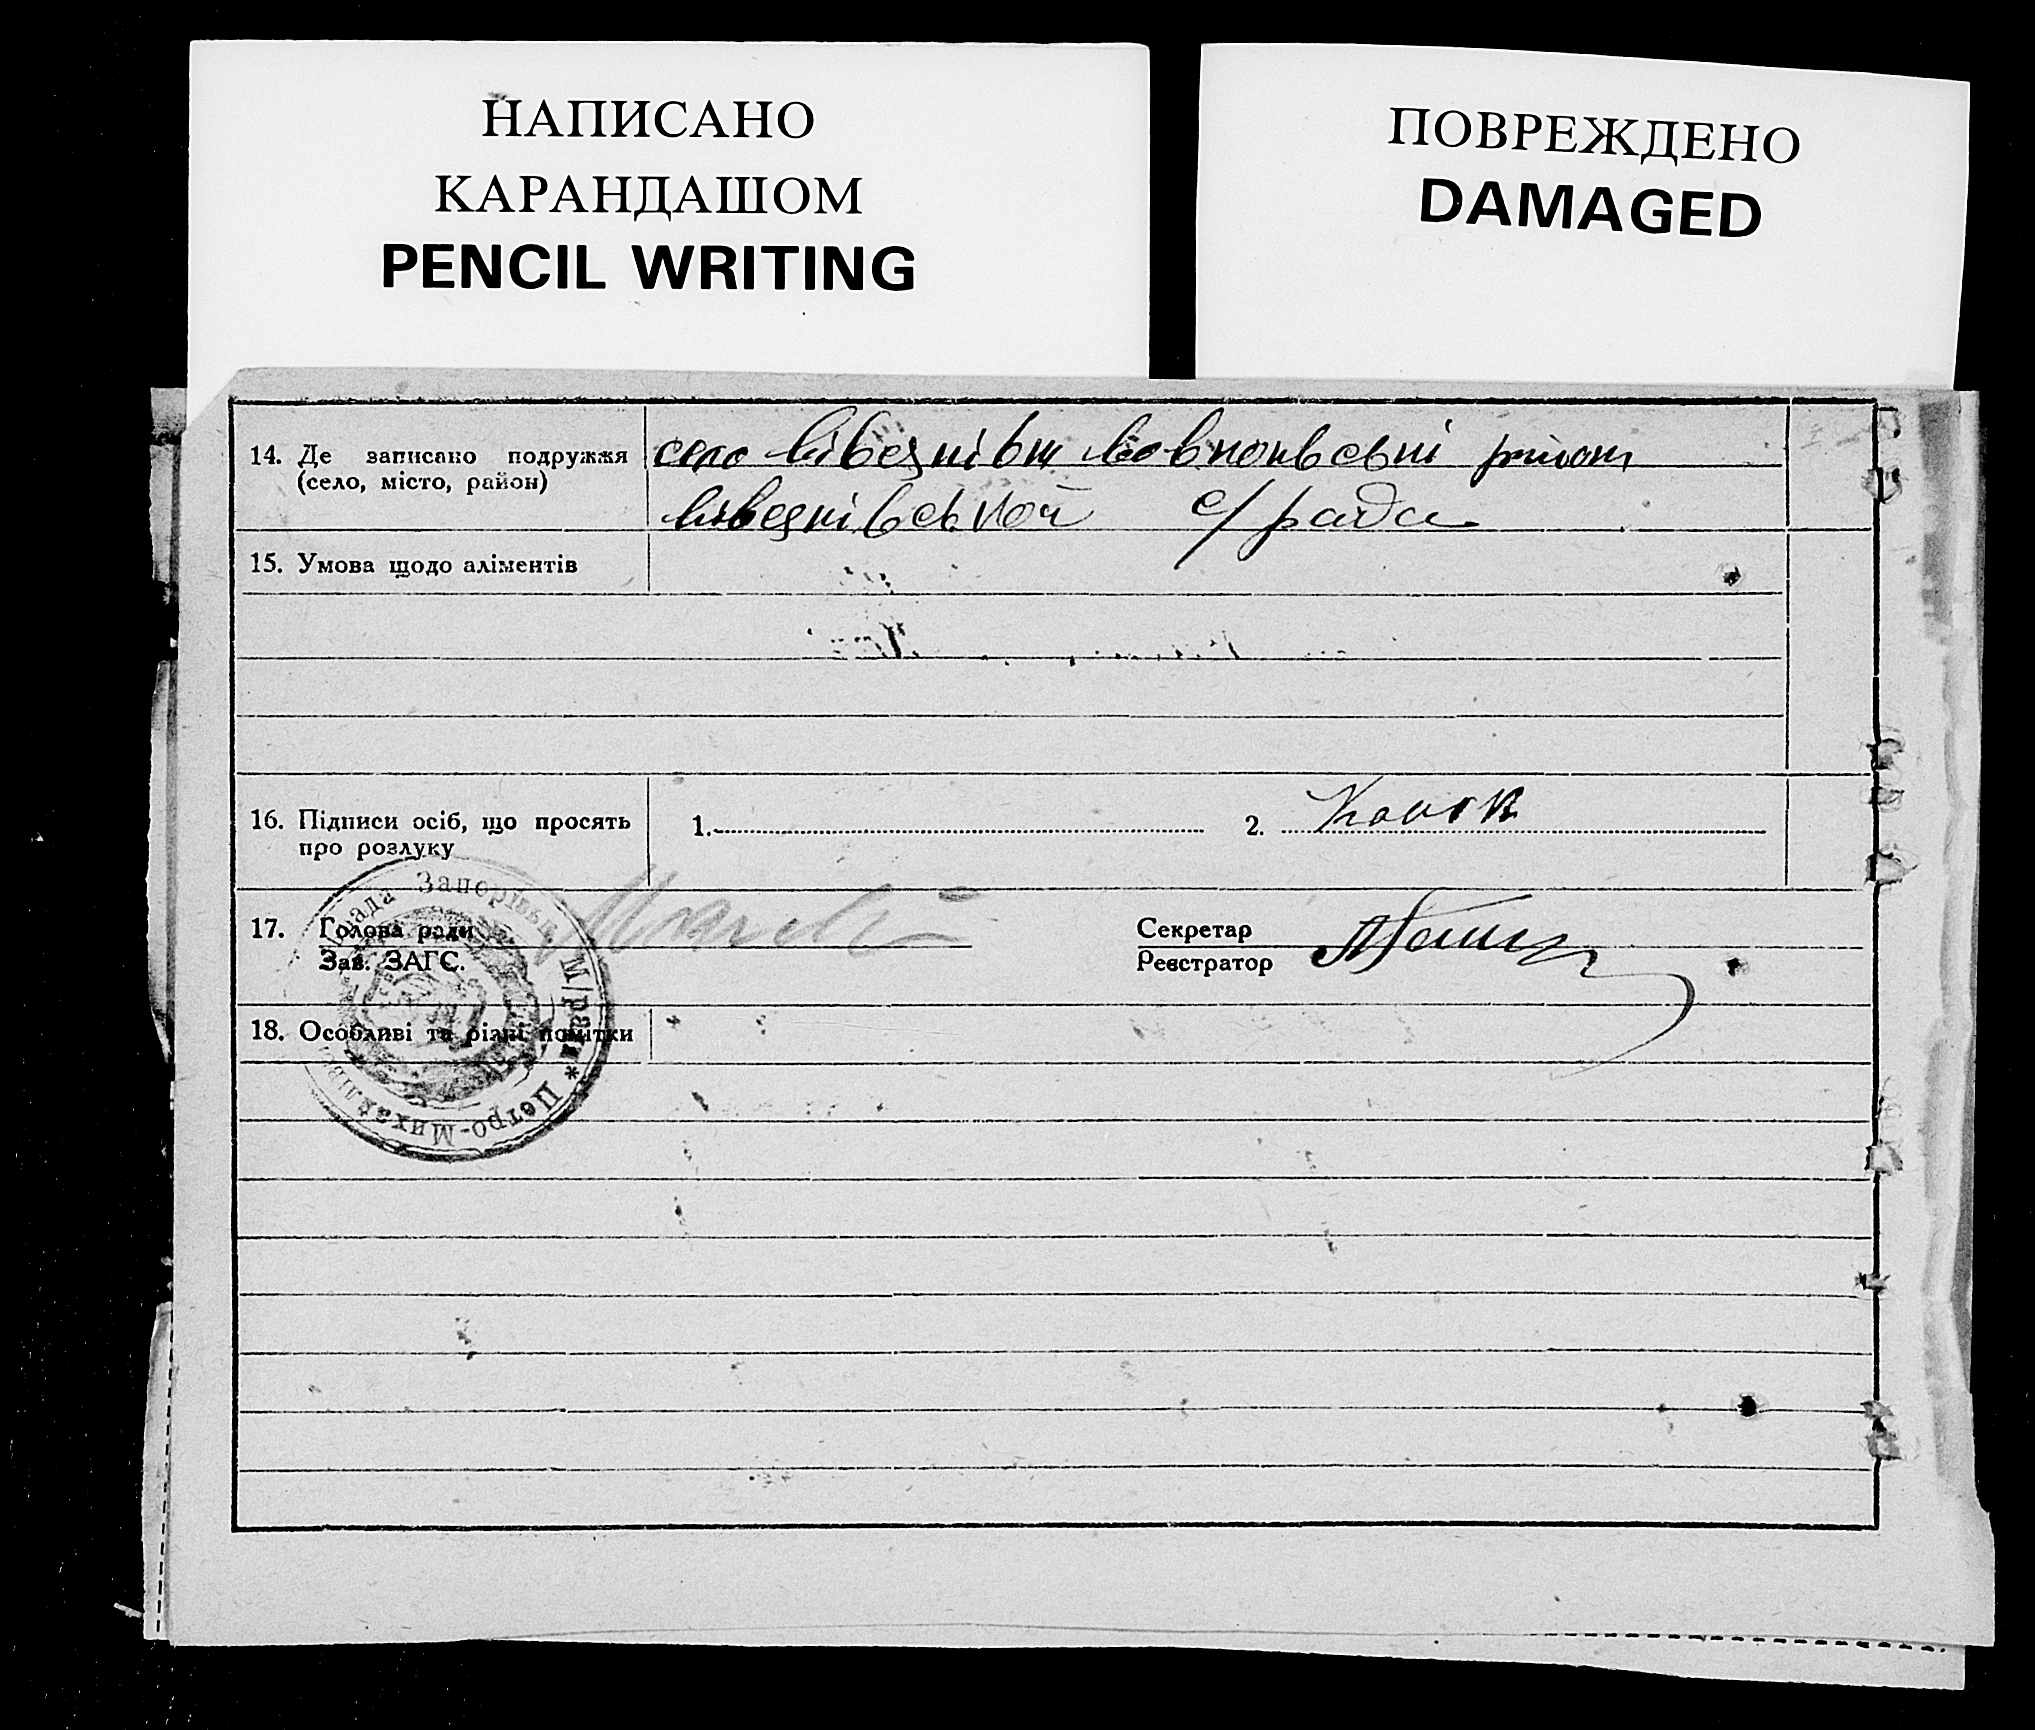 НАПИСАНО
КАРАНДАШОМ
PENCIL WRITING
ПОВРЕЖДЕНО
DAMAGED
14. Де записано подружжя
(село, місто, район)
село
с/рада
15. Умова щодо аліментів
16. Підписи осіб, що просять
про розлуку
1.
2.
17. Голова ради
Зав. ЗАГС.
Секретар
Реєстратор
18. Особливі та різні помітки
рада Запорізьк М/ради * Петро-Михайлів